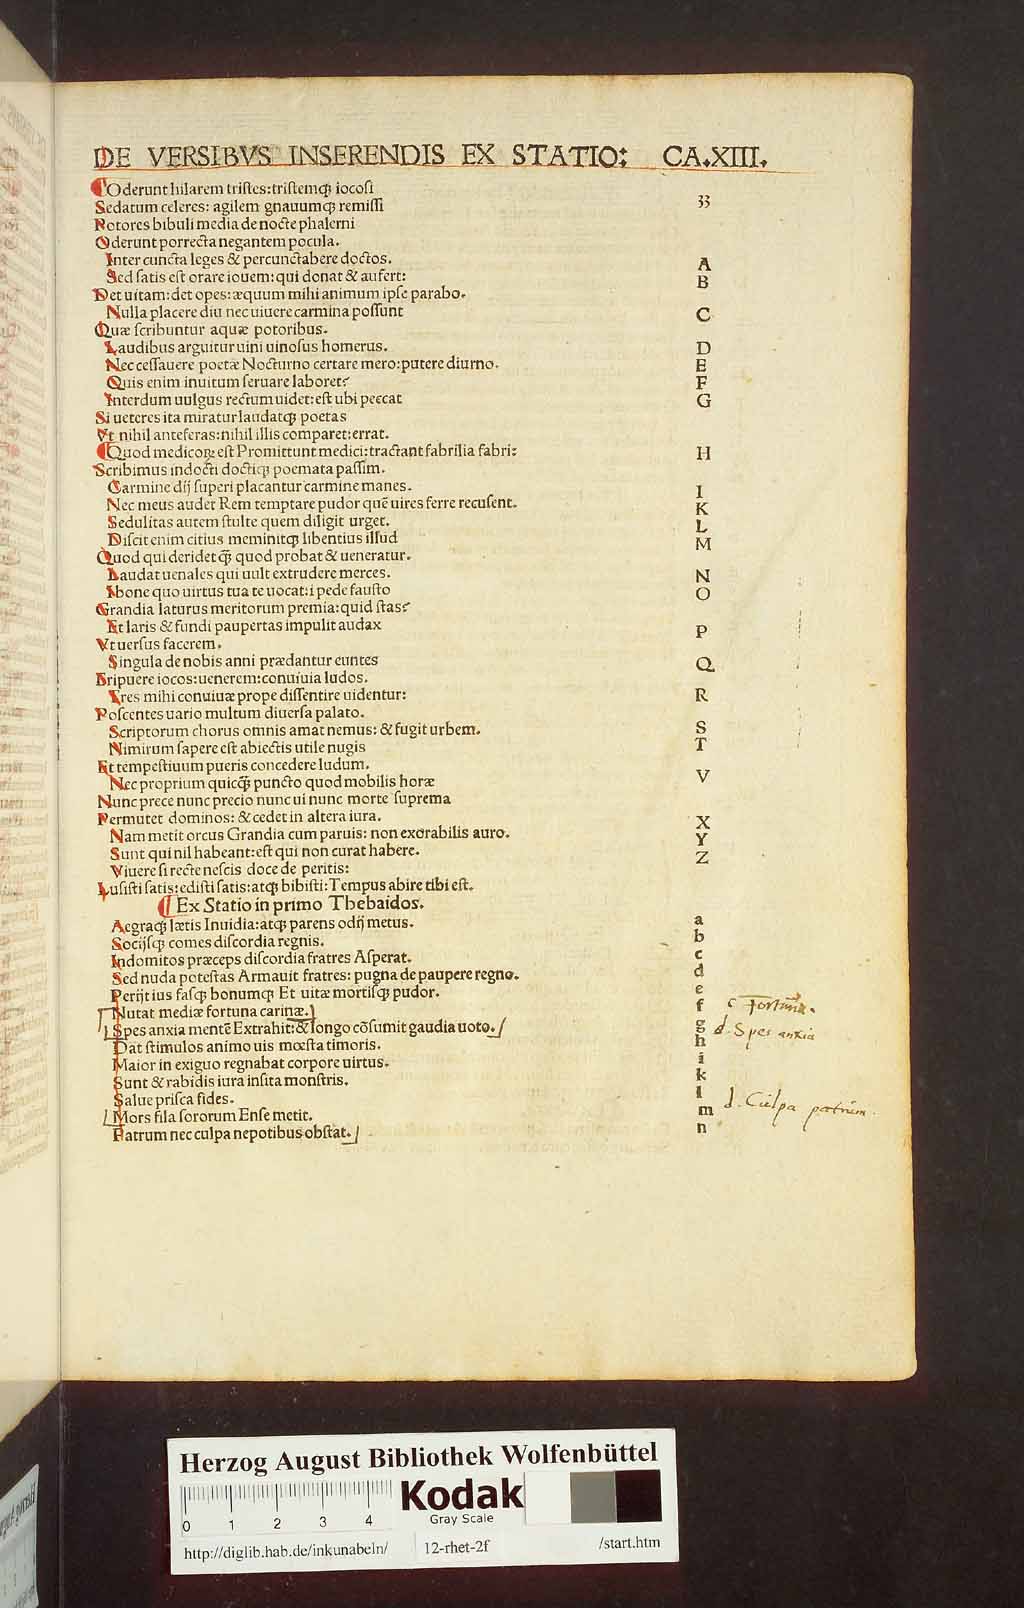 DE VERSIBVS INSERENDIS EX STATIO: CA.XIII.
Oderunt hilarem tristes:tristemqꝫ iocosi
Sedatum celeres: agilem gnauumqꝫ remissi 33
Potores bibuli media de nocte phalerni
Oderunt porrecta negantem pocula.
Inter cuncta leges & percunctabere doctos. A
Sed satis est orare iouem:qui donat & aufert: B
Det uitam:det opes:æquum mihi animum ipse parabo.
Nulla placere diu nec uiuere carmina possunt C
Quæ scribuntur aquæ potoribus.
Laudibus arguitur uini uinosus homerus. D
Nec cessauere poetæ Nocturno certare mero:putere diurno. E
Quis enim inuitum seruare laboret? F
Interdum uulgus rectum uidet:est ubi peccat G
Si ueteres ita miratur laudatqꝫ poetas
Vt nihil anteferas:nihil illis comparet:errat.
Quod medicoꝝ est Promittunt medici:tractant fabrilia fabri: H
Scribimus indocti doctiqꝫ poemata passim.
Carmine dij superi placantur carmine manes. I
Nec meus audet Rem temptare pudor quē uires ferre recusent. K
Sedulitas autem stulte quem diligit urget. L
Discit enim citius meminitqꝫ libentius illud M
Quod qui deridet qꝫ̄ quod probat & ueneratur.
Laudat uenales qui uult extrudere merces. N
I bone quo uirtus tua te uocat:i pede fausto O
Grandia laturus meritorum premia:quid stas?
Et laris & fundi paupertas impulit audax P
Vt uersus facerem.
Singula de nobis anni prædantur euntes Q
Eripuere iocos:uenerem:conuiuia ludos.
Tres mihi conuiuæ prope dissentire uidentur: R
Poscentes uario multum diuersa palato.
Scriptorum chorus omnis amat nemus: & fugit urbem. S
Nimirum sapere est abiectis utile nugis T
Et tempestiuum pueris concedere ludum.
Nec proprium quicqꝫ̄ puncto quod mobilis horæ V
Nunc prece nunc precio nunc ui nunc morte suprema
Permutet dominos: & cedet in altera iura.
Nam metit orcus Grandia cum paruis: non exorabilis auro. X
Sunt qui nil habeant:est qui non curat habere. Y
Viuere si recte nescis doce de peritis: Z
Lusisti satis:edisti satis:atqꝫ bibisti:Tempus abire tibi est.
Ex Statio in primo Thebaidos.
Aegraqꝫ lætis Inuidia:atqꝫ parens odij metus. a
Socijsqꝫ comes discordia regnis. b
Indomitos præceps discordia fratres Asperat. c
Sed nuda potestas Armauit fratres: pugna de paupere regno. d
Perijt ius fasqꝫ bonumqꝫ Et uitæ mortisqꝫ pudor. e
Nutat mediæ fortuna carinæ. f c Fortuna.
Spes anxia mentē Extrahit:& longo cōsumit gaudia uoto. g d. Spes anxia
Dat stimulos animo uis mœsta timoris. h
Maior in exiguo regnabat corpore uirtus. i
Sunt & rabidis iura insita monstris. k
Salue prisca fides. l
Mors fila sororum Ense metit. m d. Culpa patrum.
Patrum nec culpa nepotibus obstat. n
Herzog August Bibliothek Wolfenbüttel
0 1 2 3 4
Kodak
Gray Scale
http://diglib.hab.de/inkunabeln/ 12-rhet-2f /start.htm